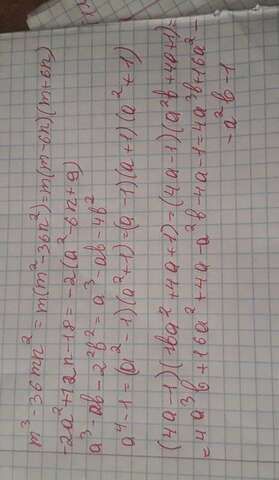 m³-36mn²=m(m²-36n²)=m(m-6n)(m+6n)
-2a²+12n-18=-2(a²-6n+9)
a³-ab-2²b²=a³-ab-4b²
a⁴-1=(a²-1)(a²+1)=(a-1)(a+1)(a²+1)
(4a-1)(16a²+4a+1)=(4a-1)(a²b+4a+1)=
=4a³b+16a²+4a-a²b-4a-1=4a³b+16a²-
-a²b-1